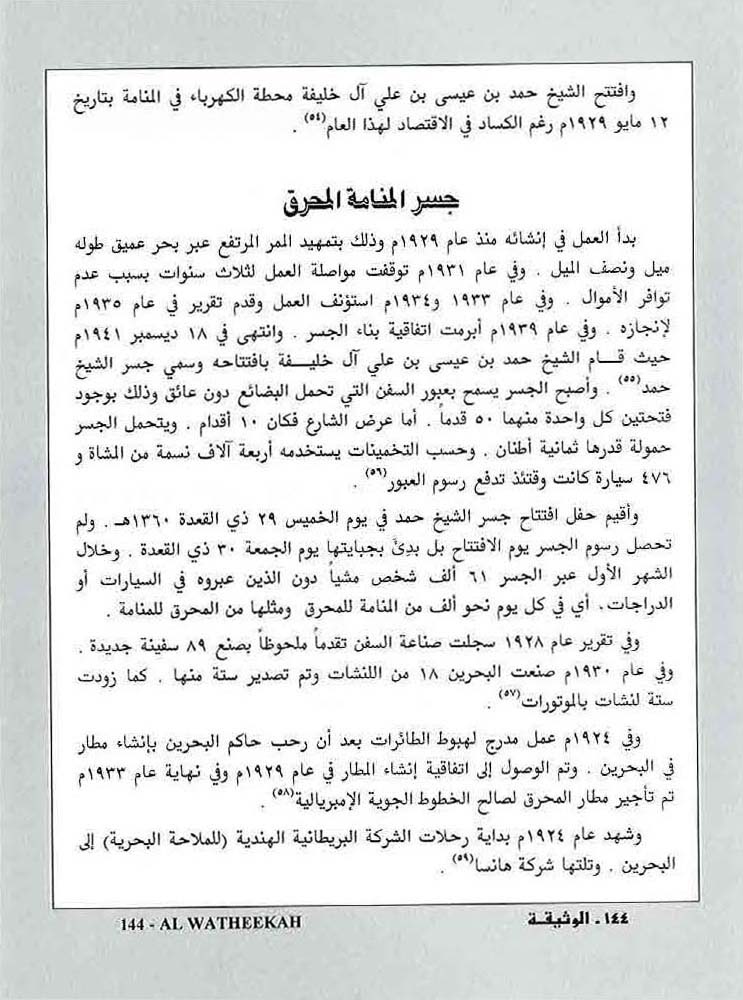 وافتتح الشيخ حمد بن عيسى بن علي آل خليفة محطة الكهرباء في المنامة بتاريخ
١٢ مايو ١٩٢٩م رغم الكساد في الاقتصاد لهذا العام(٥٤) .
جسر المنامة المحرق
بدأ العمل في إنشائه منذ عام ١٩٢٩م وذلك بتمهيد الممر المرتفع عبر بحر عميق طوله
ميل ونصف الميل . وفي عام ١٩٣١م توقفت مواصلة العمل لثلاث سنوات بسبب عدم
توافر الأموال . وفي عام ١٩٣٣ و١٩٣٤م استؤنف العمل وقدم تقرير في عام ١٩٣٥م
لإنجازه . وفي عام ١٩٣٩م أبرمت اتفاقية بناء الجسر . وانتهى في ١٨ ديسمبر ١٩٤١م
حيث قـــام الشيخ حمد بن عيسى بن علي آل خليـــفة بافتتاحه وسمي جسر الشيخ
حمد(٥٥) . وأصبح الجسر يسمح بعبور السفن التي تحمل البضائع دون عائق وذلك بوجود
فتحتين كل واحدة منهما ٥٠ قدماً . أما عرض الشارع فكان ١٠ أقدام . ويتحمل الجسر
حمولة قدرها ثمانية أطنان . وحسب التخمينات يستخدمه أربعة آلاف نسمة من المشاة و
٤٧٦ سيارة كانت وقتئذ تدفع رسوم العبور(٥٦) .
وأقيم حفل افتتاح جسر الشيخ حمد في يوم الخميس ٢٩ ذي القعدة ١٣٦٠هـ . ولم
تحصل رسوم الجسر يوم الافتتاح بل بدِئَ بجبايتها يوم الجمعة ٣٠ ذي القعدة . وخلال
الشهر الأول عبر الجسر ٦١ ألف شخص مشياً دون الذين عبروه في السيارات أو
الدراجات، أي في كل يوم نحو ألف من المنامة للمحرق ومثلها من المحرق للمنامة .
وفي تقرير عام ١٩٢٨ سجلت صناعة السفن تقدماً ملحوظاً بصنع ٨٩ سفينة جديدة .
وفي عام ١٩٣٠م صنعت البحرين ١٨ من اللنشات وتم تصدير ستة منها . كما زودت
ستة لنشات بالموتورات(٥٧) .
وفي ١٩٢٤م عمل مدرج لهبوط الطائرات بعد أن رحب حاكم البحرين بإنشاء مطار
في البحرين . وتم الوصول إلى اتفاقية إنشاء المطار في عام ١٩٢٩م وفي نهاية عام ١٩٣٣م
تم تأجير مطار المحرق لصالح الخطوط الجوية الإمبريالية(٥٨) .
وشهد عام ١٩٢٤م بداية رحلات الشركة البريطانية الهندية (للملاحة البحرية) إلى
البحرين . وتلتها شركة هانسا(٥٩) .
144 - AL WATHEEKAH
١٤٤ ـ الوثيقـة